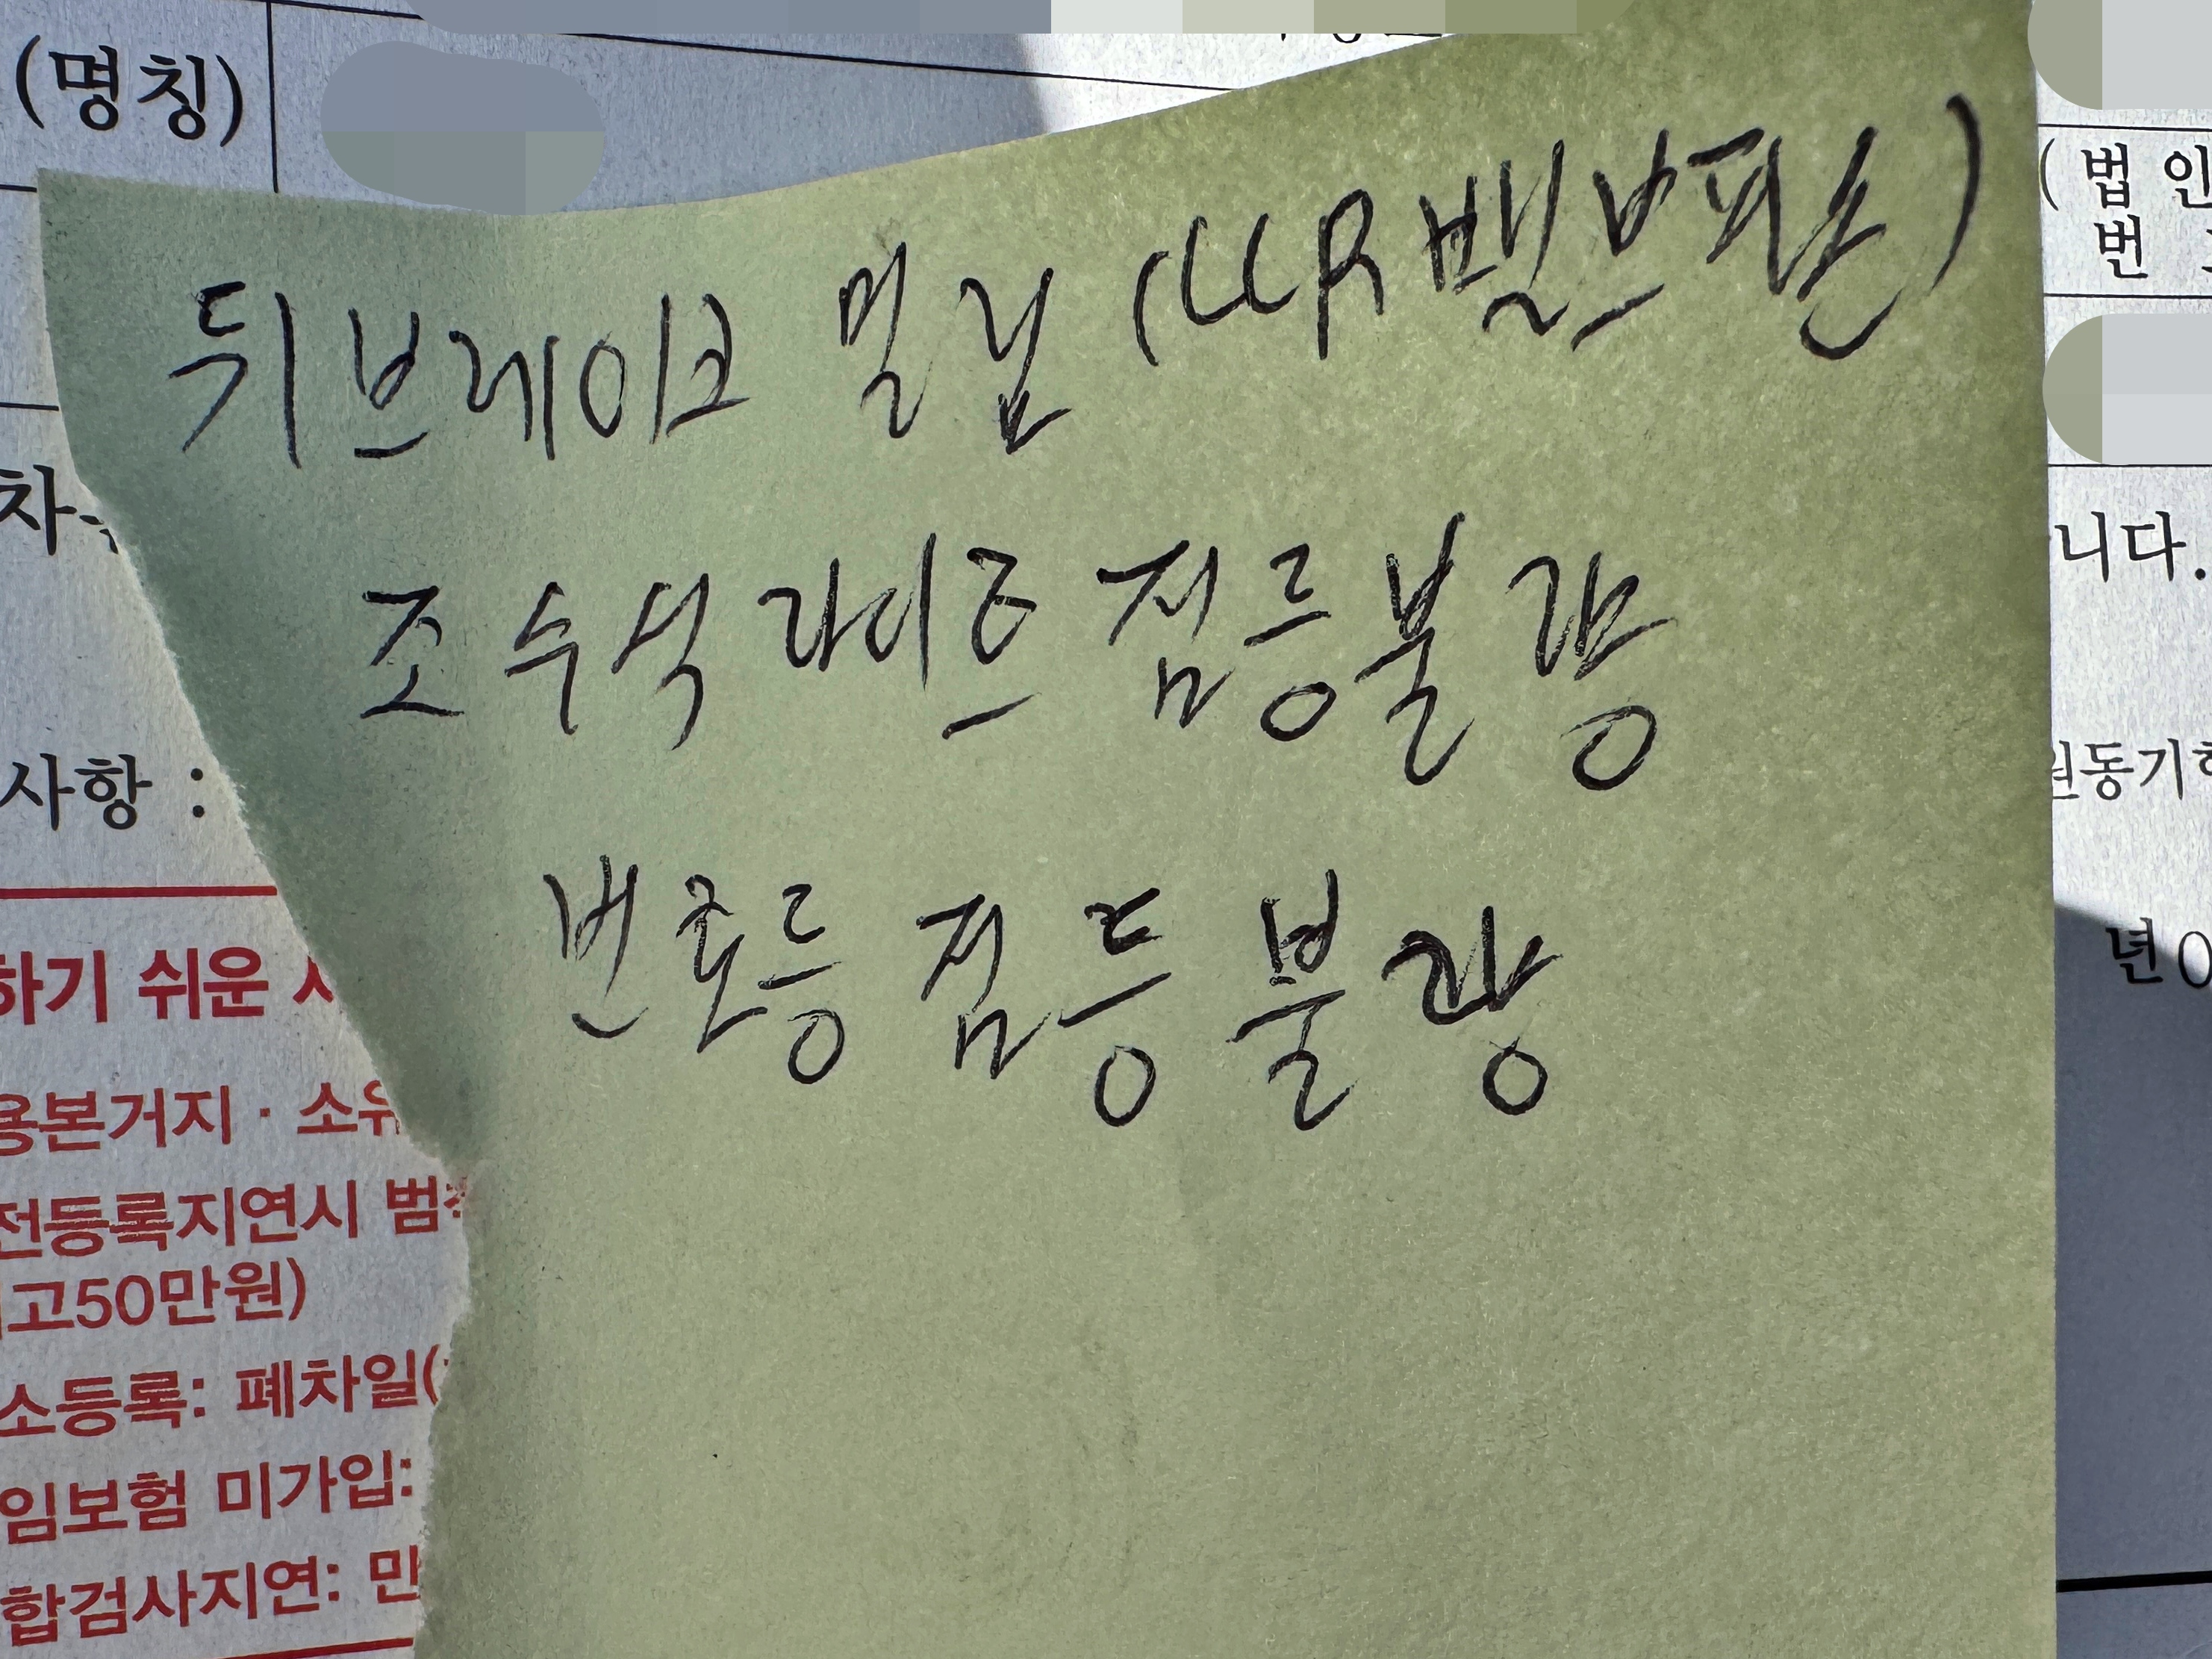 (명칭)
(법인
번
뒤브레이크 밀림 (LLR밸브파손)
차
니다.
조수석 라이트 점등불량
사항 :
원동기
번호등 점등 불량
년
하기 쉬운
용본거지 · 소유
전등록지연시 범
고50만원)
소등록: 폐차일(
임보험 미가입:
합검사지연: 만